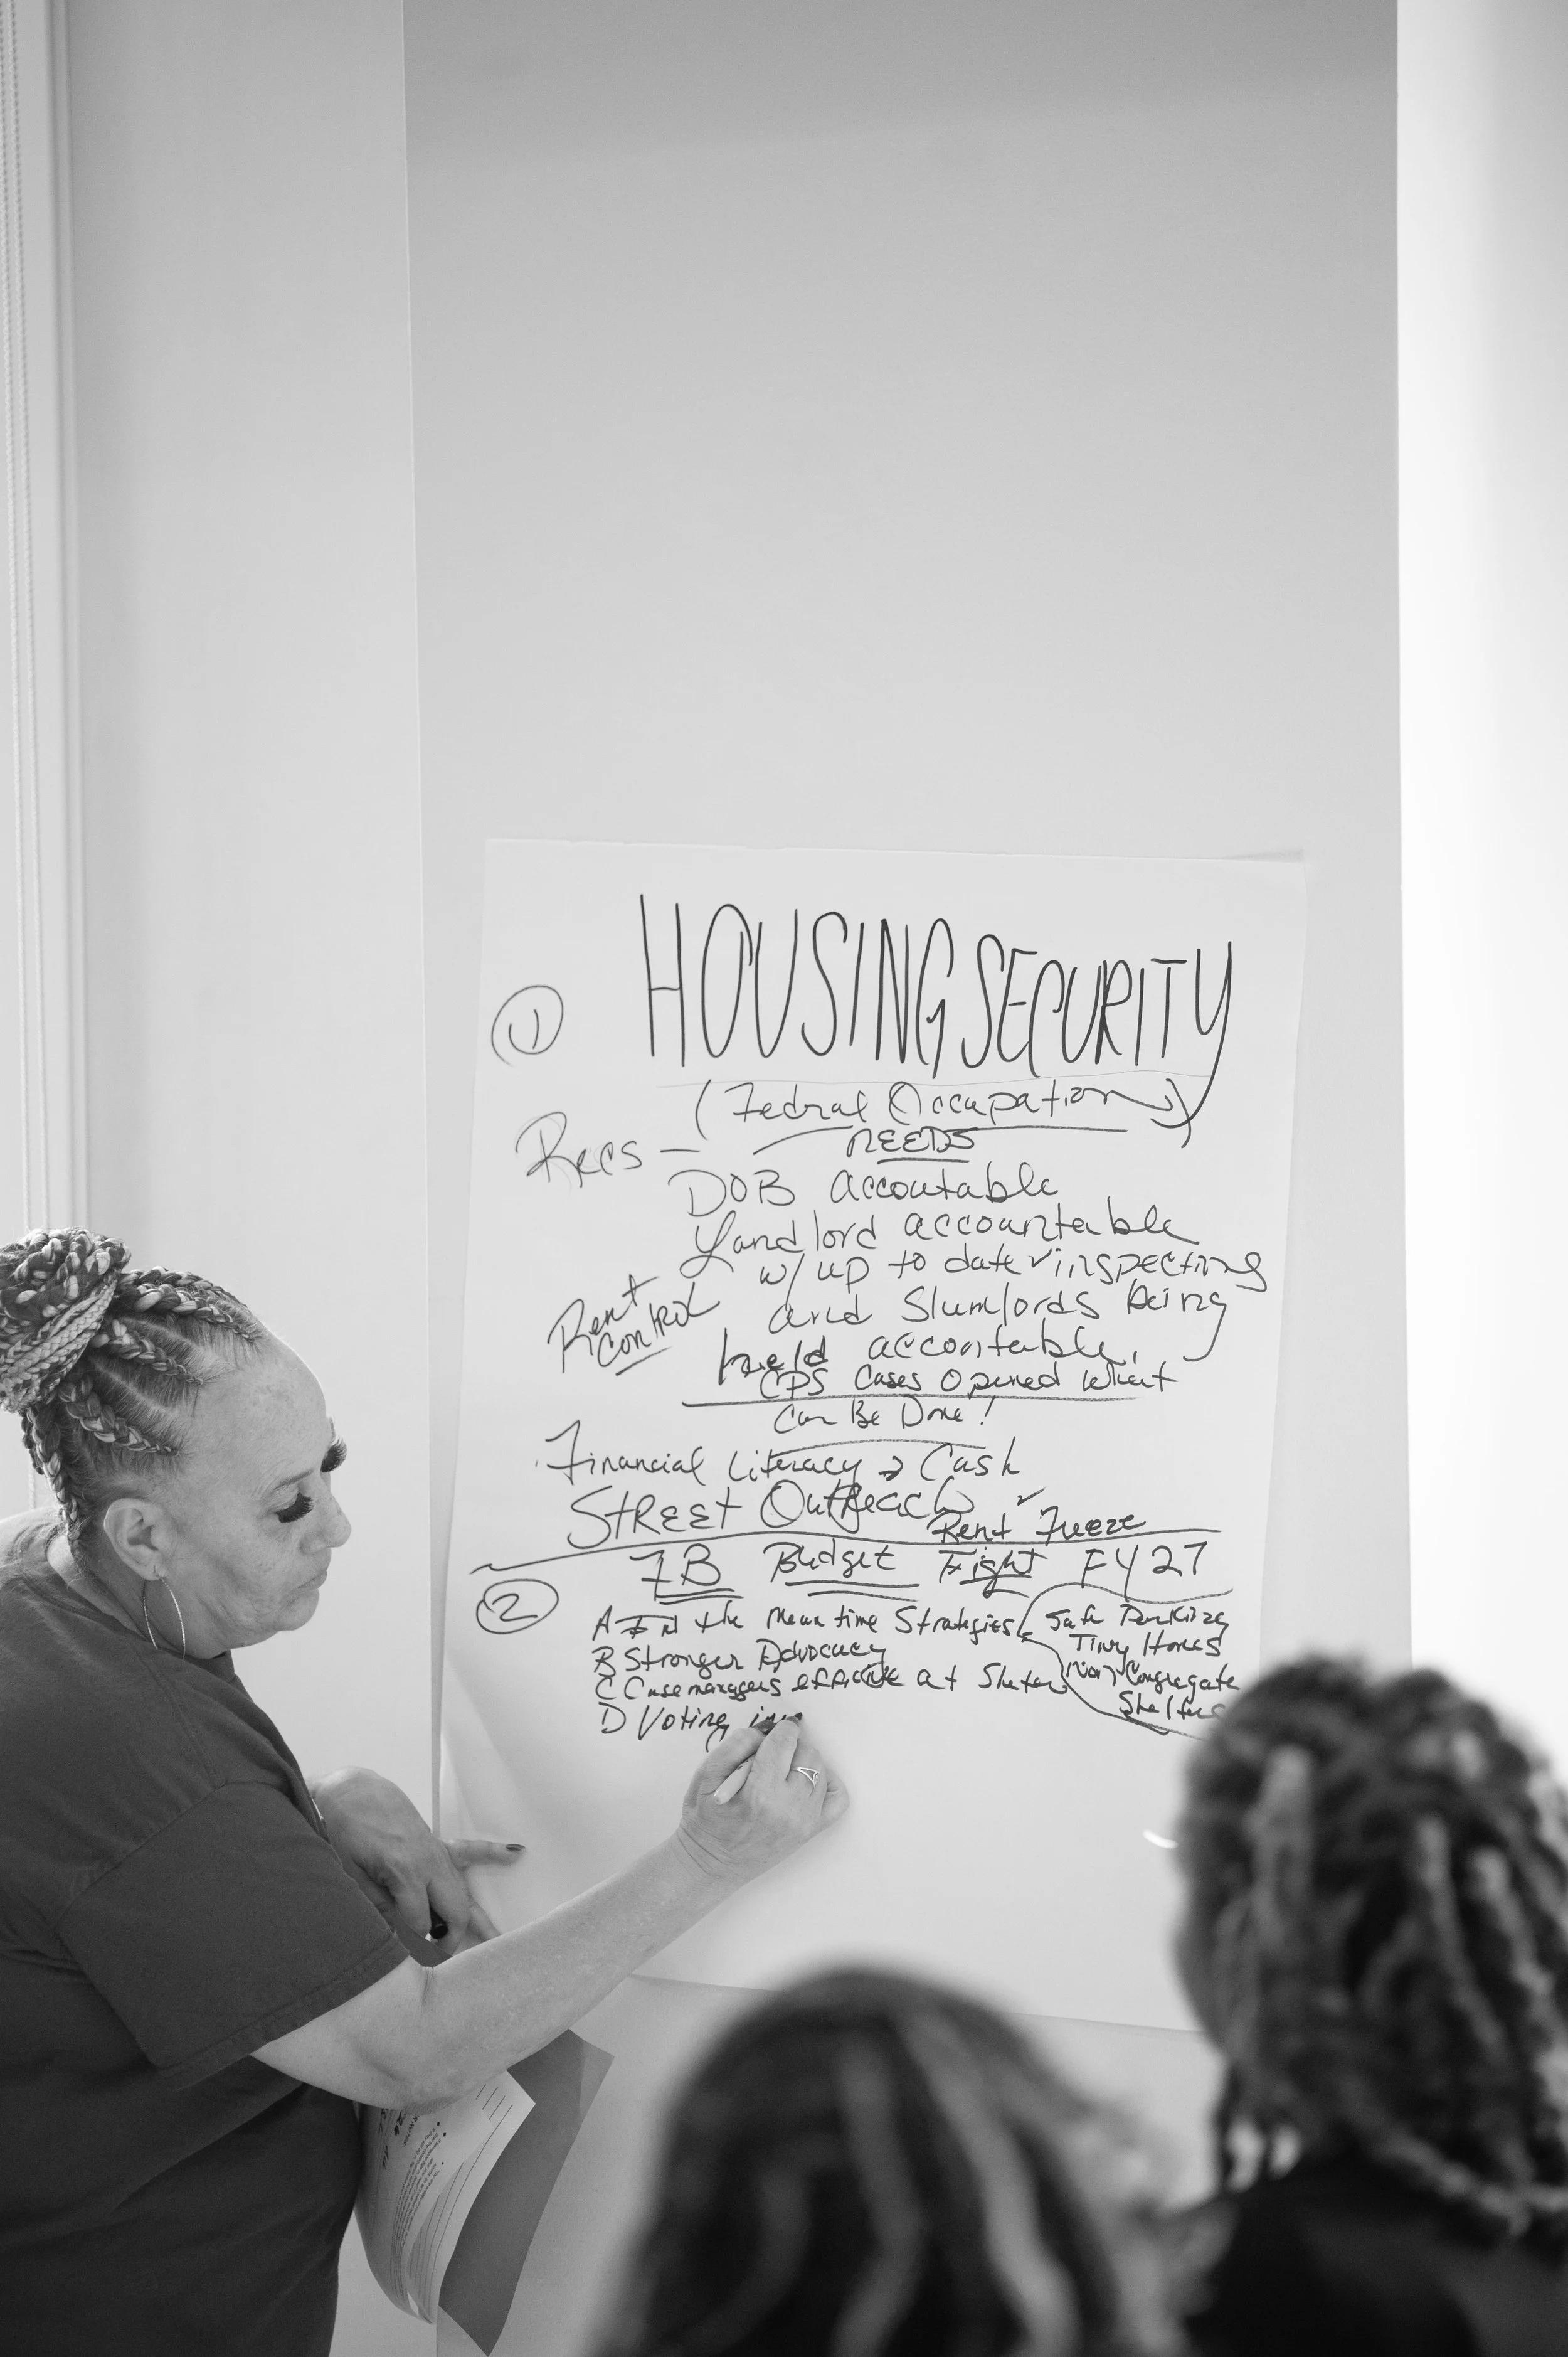 HOUSING SECURITY
①
(Fedral Occupation)
Recs — NEEDS
DOB accoutable
Landlord accountable
w/ up to date ✓ inspecting
Rent
Control
and Slumlords Being
held accountable,
CPS Cases Opened What
Can Be Done!
Financial Literacy → Cash
STREET OutReach ✓
Rent Freeze
Budget Fight FY27
②
A In the Mean time Strategies
Safe Parking
Tiny Homes
Non Congregate
Shelters
B Stronger Advocacy
C Case managers at Shelter
D Voting